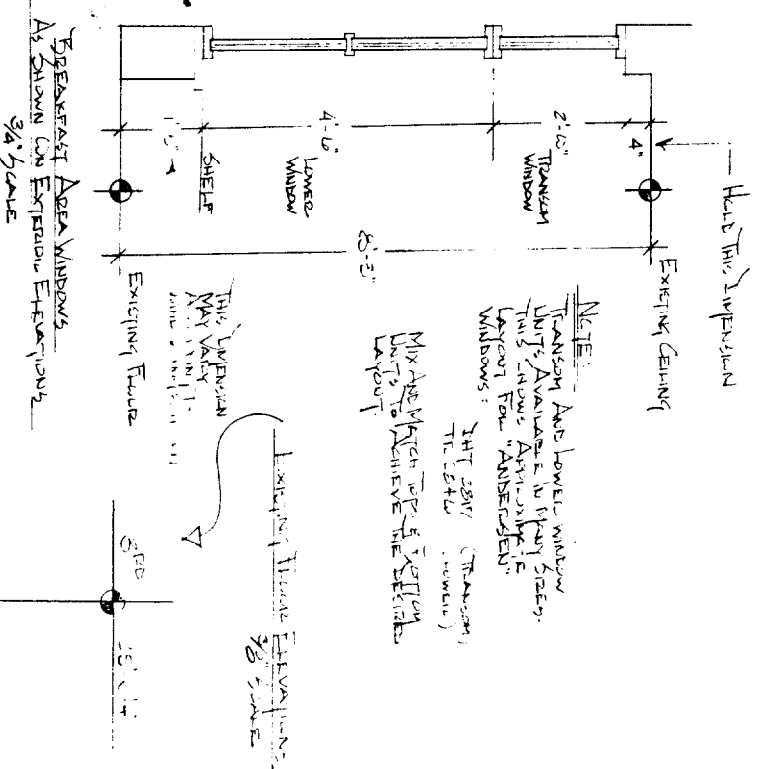 HOLD THIS DIMENSION
EXISTING CEILING
4"
TRANSOM
WINDOW
4'-6"
LOWER
WINDOW
SHELF
8'-3"
EXISTING FLOOR
NOTE:
TRANSOM AND LOWER WINDOW
UNITS AVAILABLE IN MANY SIZES.
THIS SHOWS APPROXIMATE
LAYOUT FOR "ANDERSEN"
WINDOWS:
(TRANSOM)
MIX AND MATCH TOP & BOTTOM
UNITS TO ACHIEVE THE DESIRED
LAYOUT
THIS DIMENSION
MAY VARY
BREAKFAST AREA WINDOWS
AS SHOWN ON EXTERIOR ELEVATIONS
3/4" SCALE
EXISTING FLOOR ELEVATIONS
3/8" SCALE